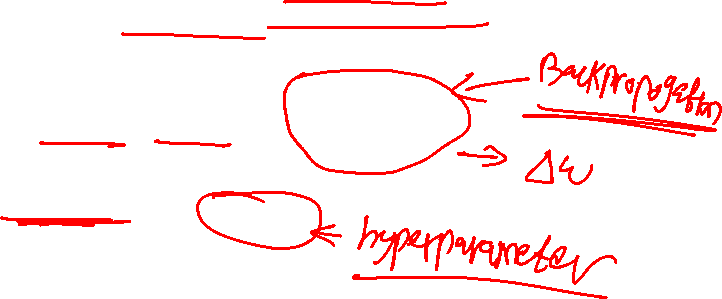 Backpropogation
Δw
hyperparameter